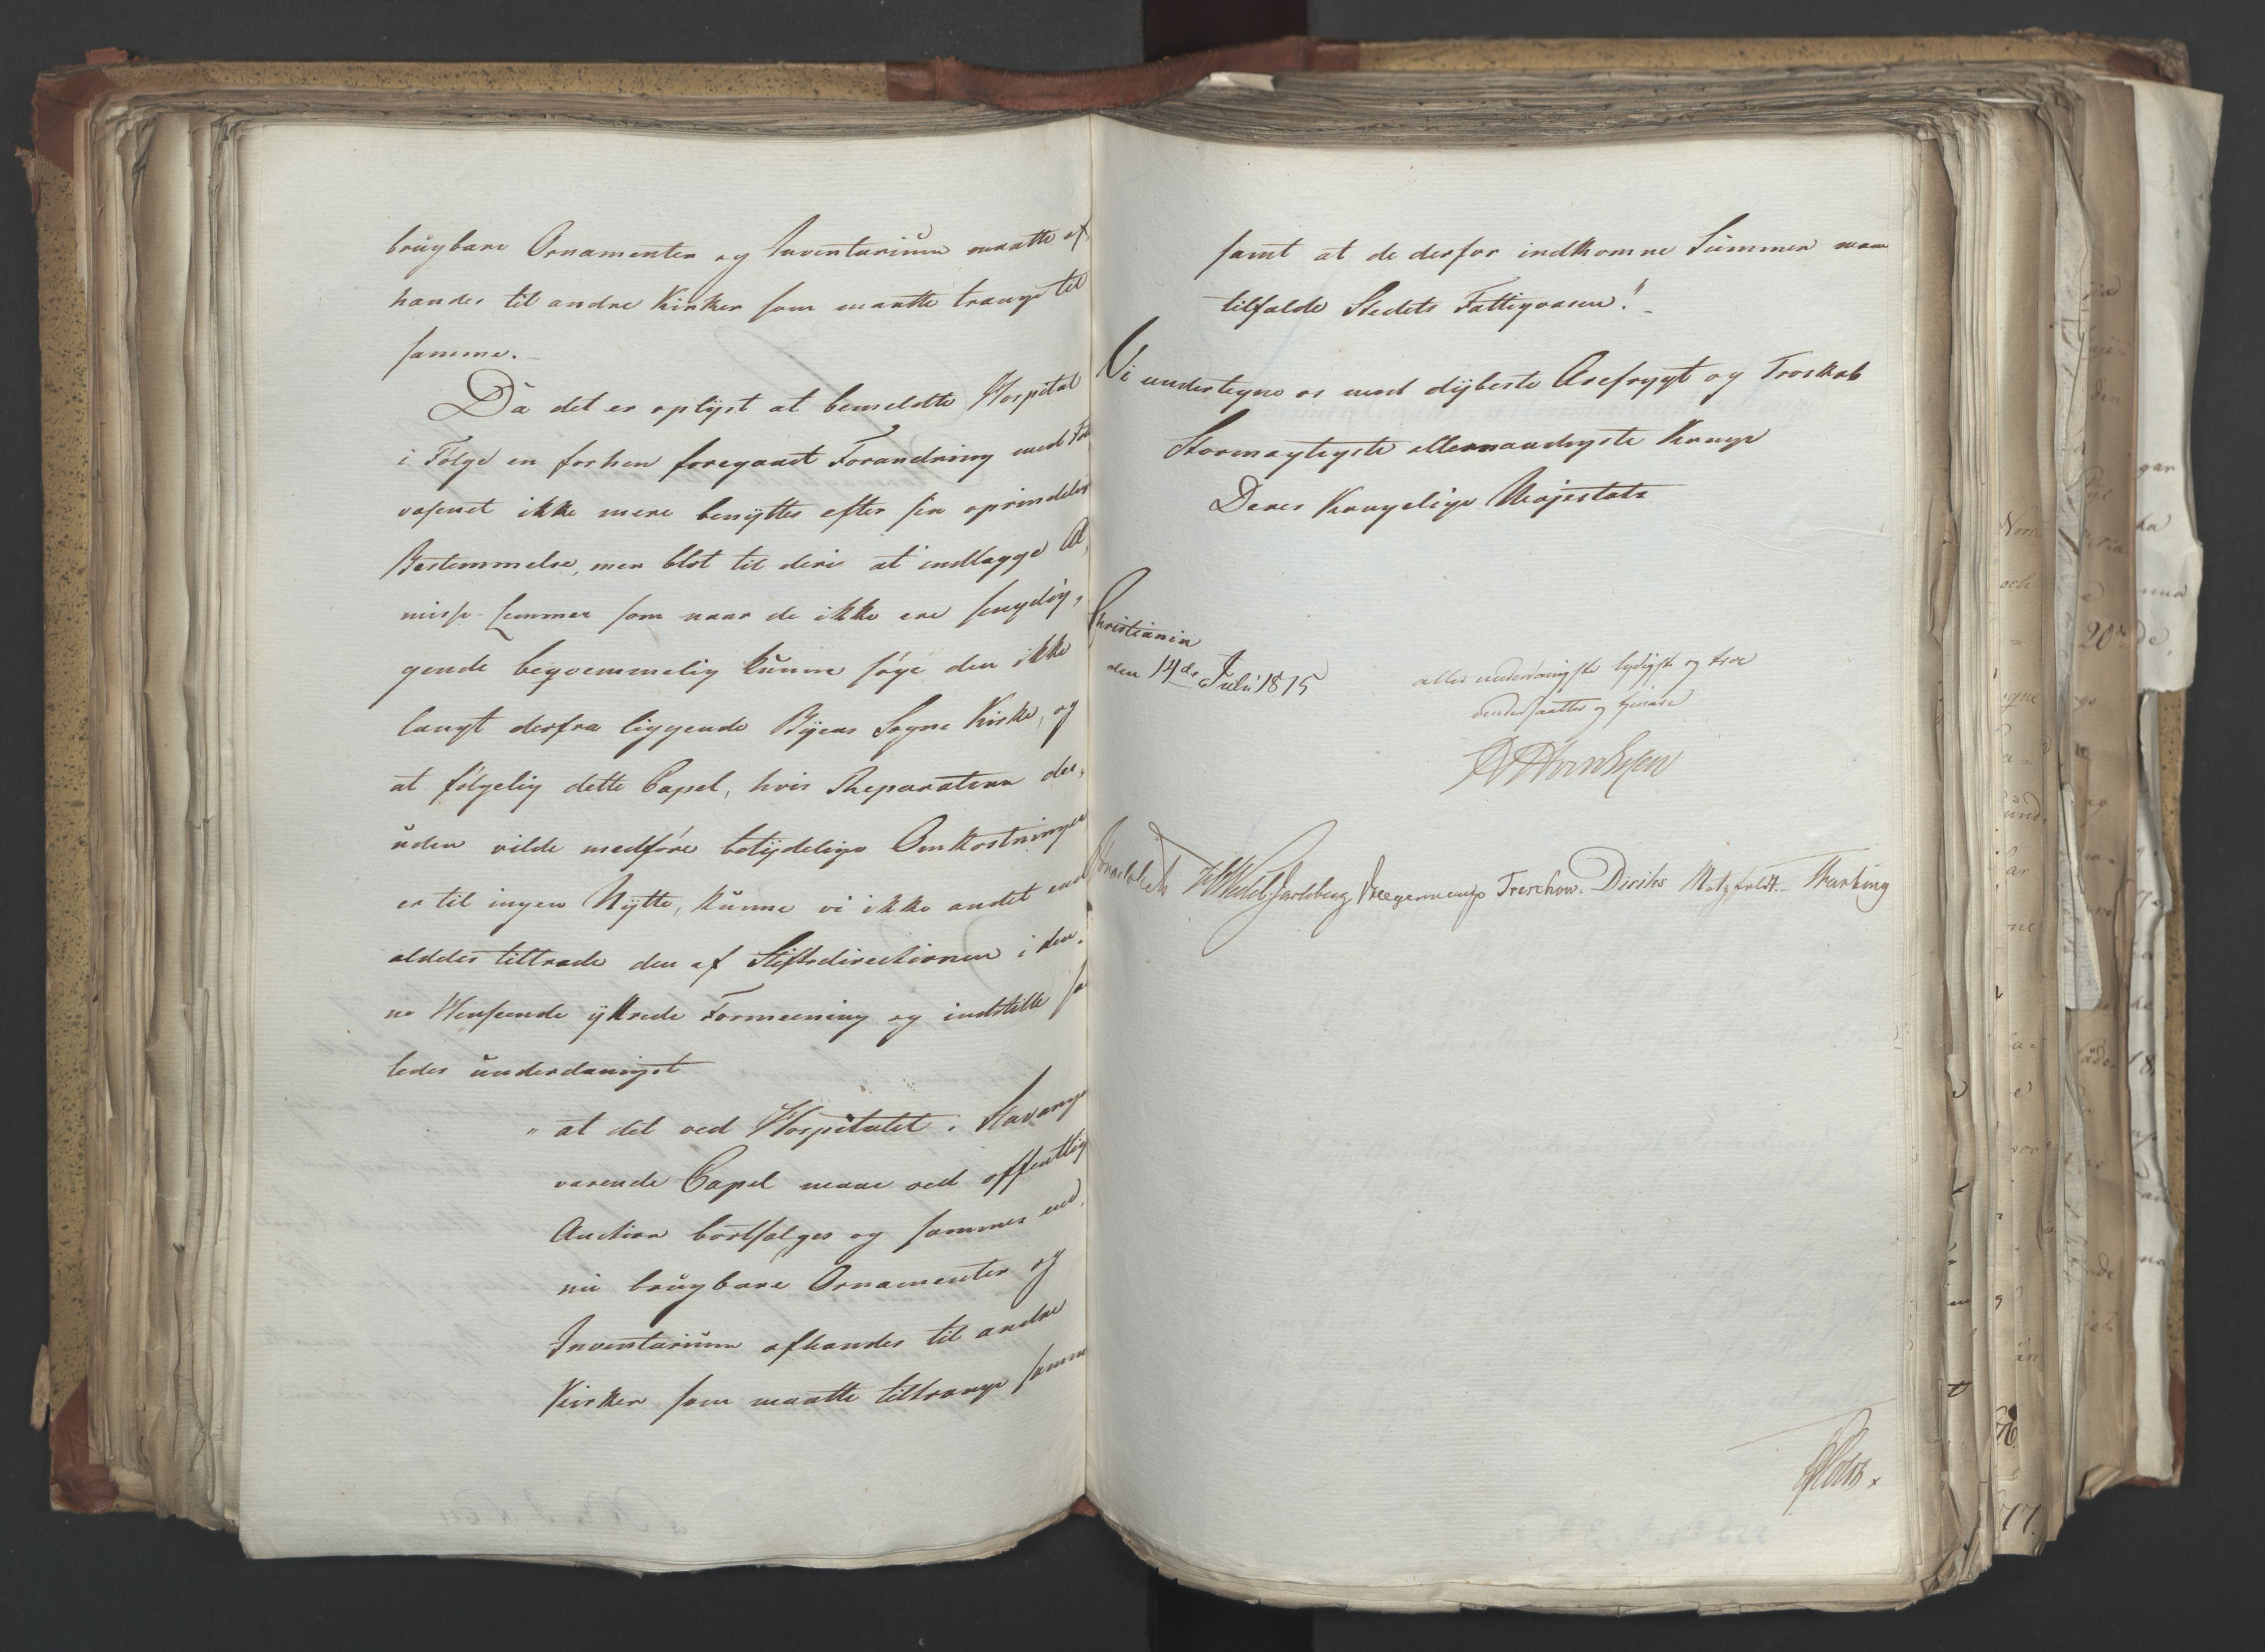 brugbare Ornamenter og Inventarium maatte af,
hændes til andre Kirker som maatte trænge til
samme. _
Da det er oplyst at bemeldte Hospital
i Følge en forhen foregaaet Forandring med
væsenet ikke mere benyttes efter sin oprindelig
Bestemmelse, men blot til deri at indlægge Al,
misse-Lemmer som naar de ikke ere sengelig,
gende beqvemmelig kunne søge den ikke
langt derfra liggende Byens Sogne Kirke, og
at følgelig dette Capel, hvis Reparation des,
uden vilde medføre betydelige Omkostninger
er til ingen Nytte, kunne vi ikke andet end
aldeles tiltræde den af Stiftsdirectionen i den,
ne Henseende yttrede Formeening og indstille saa
ledes underdanigst
" at det ved Hospitalet i Stavanger
værende Capel maae ved offentlig
Auction bortsælges og sammes end,
nu brugbare Ornamenter og
Inventarium afhændes til andre
Kirker som maatte tiltrænge samme
samt at de derfor indkomne Summer maae
tilfalde Stedets Fattigvæsen." _
Vi undertegne os med dybeste Ærefrygt og Troskab
Stormægtigste allernaadigste Konge
Deres Kongelige Majestæts
Christiania
den 14de Juli 1815
allerunderdanigste lydigste og troe
undersaatter og tjenere
Hornkjen
Sommerhielm Wedel-Jarlsberg Krogemann Treschow. Diriks Motzfeldt. _ Thaulow
Holst.